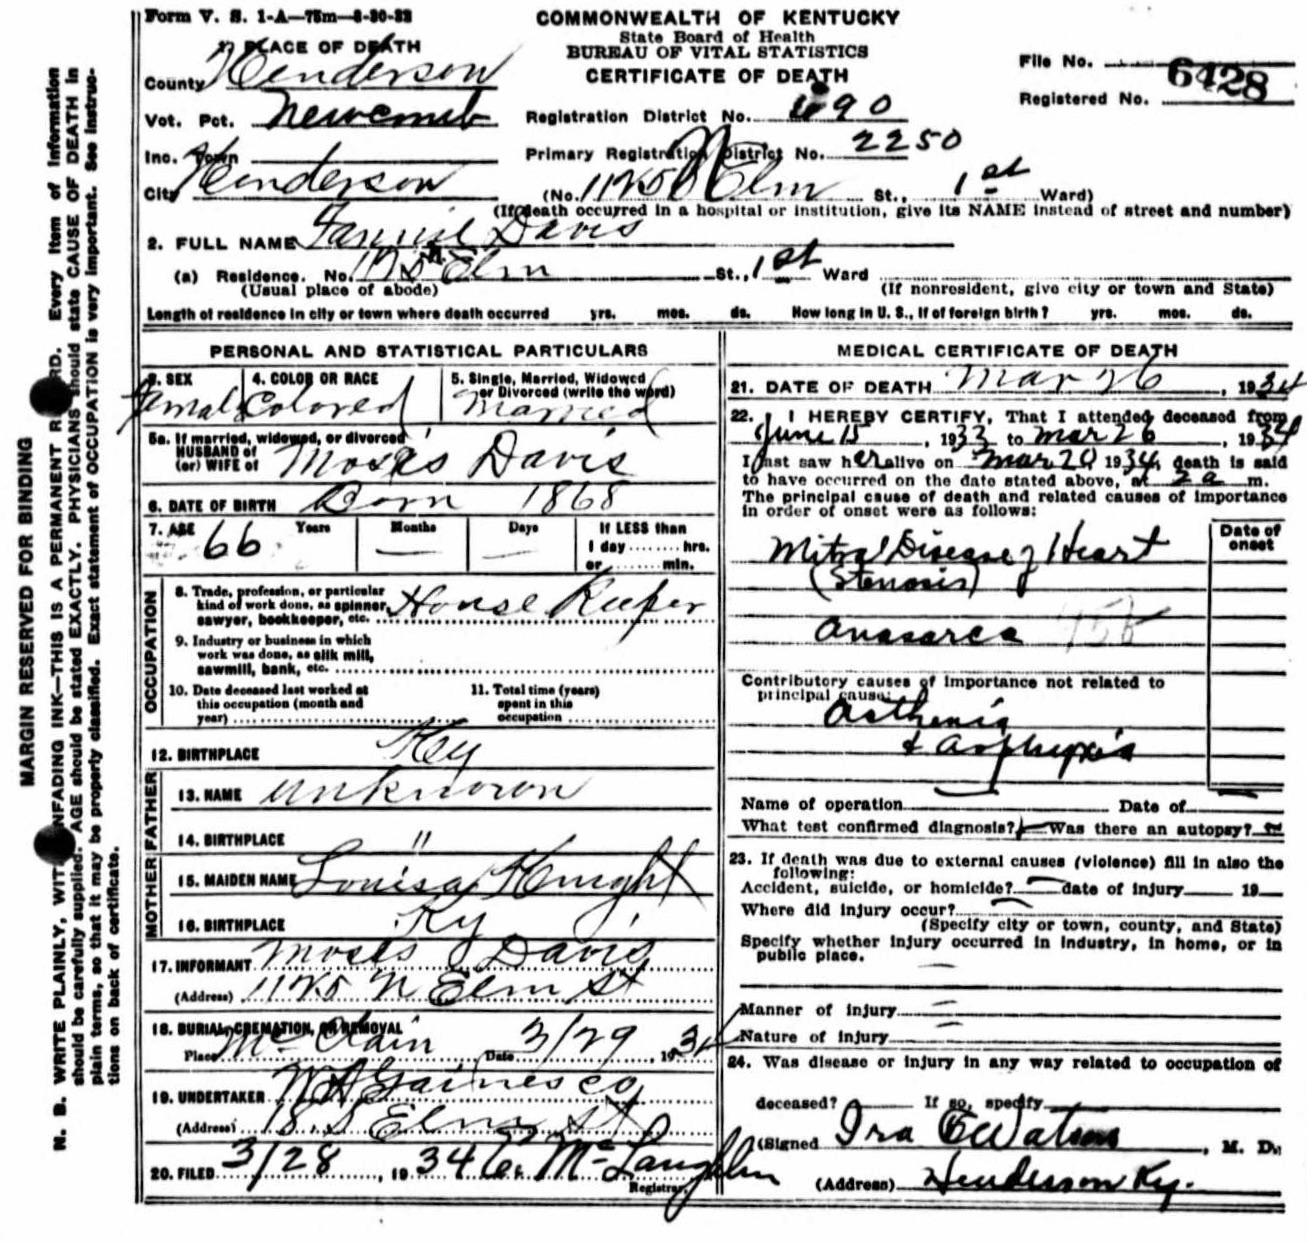 Form V. S. 1-A—75m—8-30-33
COMMONWEALTH OF KENTUCKY
State Board of Health
BUREAU OF VITAL STATISTICS
CERTIFICATE OF DEATH
File No. 6428
Registered No.
1. PLACE OF DEATH
County Henderson
Vot. Pct. Newcomb
Inc. Town
City Henderson
Registration District No. 690
Primary Registration District No. 2250
(No. 1125 N Elm St., 1st Ward)
(If death occurred in a hospital or institution, give its NAME instead of street and number)
2. FULL NAME Fannie Davis
(a) Residence. No. Elm St., 1st Ward
(Usual place of abode)
(If nonresident, give city or town and State)
Length of residence in city or town where death occurred yrs. mos. ds. How long in U. S., if of foreign birth? yrs. mos. ds.
PERSONAL AND STATISTICAL PARTICULARS
3. SEX
Female
4. COLOR OR RACE
Colored
5. Single, Married, Widowed
or Divorced (write the word)
Married
5a. If married, widowed, or divorced
HUSBAND of
(or) WIFE of Moses Davis
6. DATE OF BIRTH Born 1868
7. AGE Years Months Days If LESS than
66 — — 1 day ........ hrs.
or ........ min.
OCCUPATION
8. Trade, profession, or particular
kind of work done, as spinner,
sawyer, bookkeeper, etc. House Keeper
9. Industry or business in which
work was done, as silk mill,
sawmill, bank, etc.
10. Date deceased last worked at
this occupation (month and
year)
11. Total time (years)
spent in this
occupation
12. BIRTHPLACE Key
FATHER
13. NAME unknown
14. BIRTHPLACE "
MOTHER
15. MAIDEN NAME Louisa Knight
16. BIRTHPLACE Ky
17. INFORMANT Moses Davis
(Address) 1125 N Elm St
18. BURIAL, CREMATION, OR REMOVAL
Place McClain Date 3/29, 1934
19. UNDERTAKER W A Gaines Co
(Address) 18 S Elm St
20. FILED 3/28, 1934 McLaughlin
Registrar
MEDICAL CERTIFICATE OF DEATH
21. DATE OF DEATH Mar 26, 1934
22. I HEREBY CERTIFY, That I attended deceased from
June 15, 1933 to Mar 26, 1934
I last saw her alive on Mar 20 1934, death is said
to have occurred on the date stated above, at 2 a m.
The principal cause of death and related causes of importance
in order of onset were as follows:
Date of
onset
Mitral Disease of Heart
(Stenosis)
Anasarca
Contributory causes of importance not related to
principal cause:
Asthenia
& Asphyxia
Name of operation Date of
What test confirmed diagnosis? Was there an autopsy?
23. If death was due to external causes (violence) fill in also the
following:
Accident, suicide, or homicide? date of injury 19
Where did injury occur?
(Specify city or town, county, and State)
Specify whether injury occurred in industry, in home, or in
public place.
Manner of injury
Nature of injury
24. Was disease or injury in any way related to occupation of
deceased? If so, specify
(Signed Ira E Watson, M. D.
(Address) Henderson Ky.
MARGIN RESERVED FOR BINDING
N. B. WRITE PLAINLY, WITH UNFADING INK—THIS IS A PERMANENT RECORD. Every item of information
should be carefully supplied. AGE should be stated EXACTLY. PHYSICIANS should state CAUSE OF DEATH in
plain terms, so that it may be properly classified. Exact statement of OCCUPATION is very important. See instruc-
tions on back of certificate.